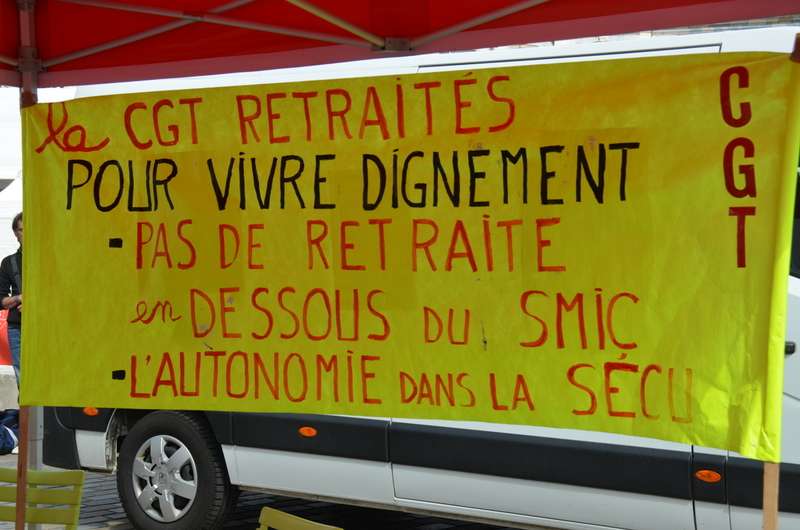 la CGT RETRAITÉS
POUR VIVRE DIGNEMENT
- PAS DE RETRAITE
en DESSOUS DU SMIC
- L'AUTONOMIE DANS LA SÉCU
CGT